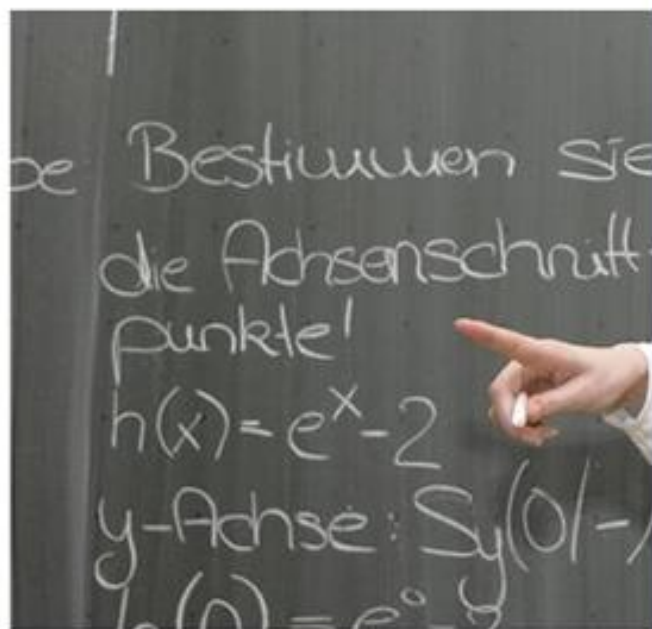 Bestimmen sie
die Achsenschnitt-
punkte!
h(x) = e^x - 2
y-Achse: Sy(0/-)
h(0) = e^0 - 2